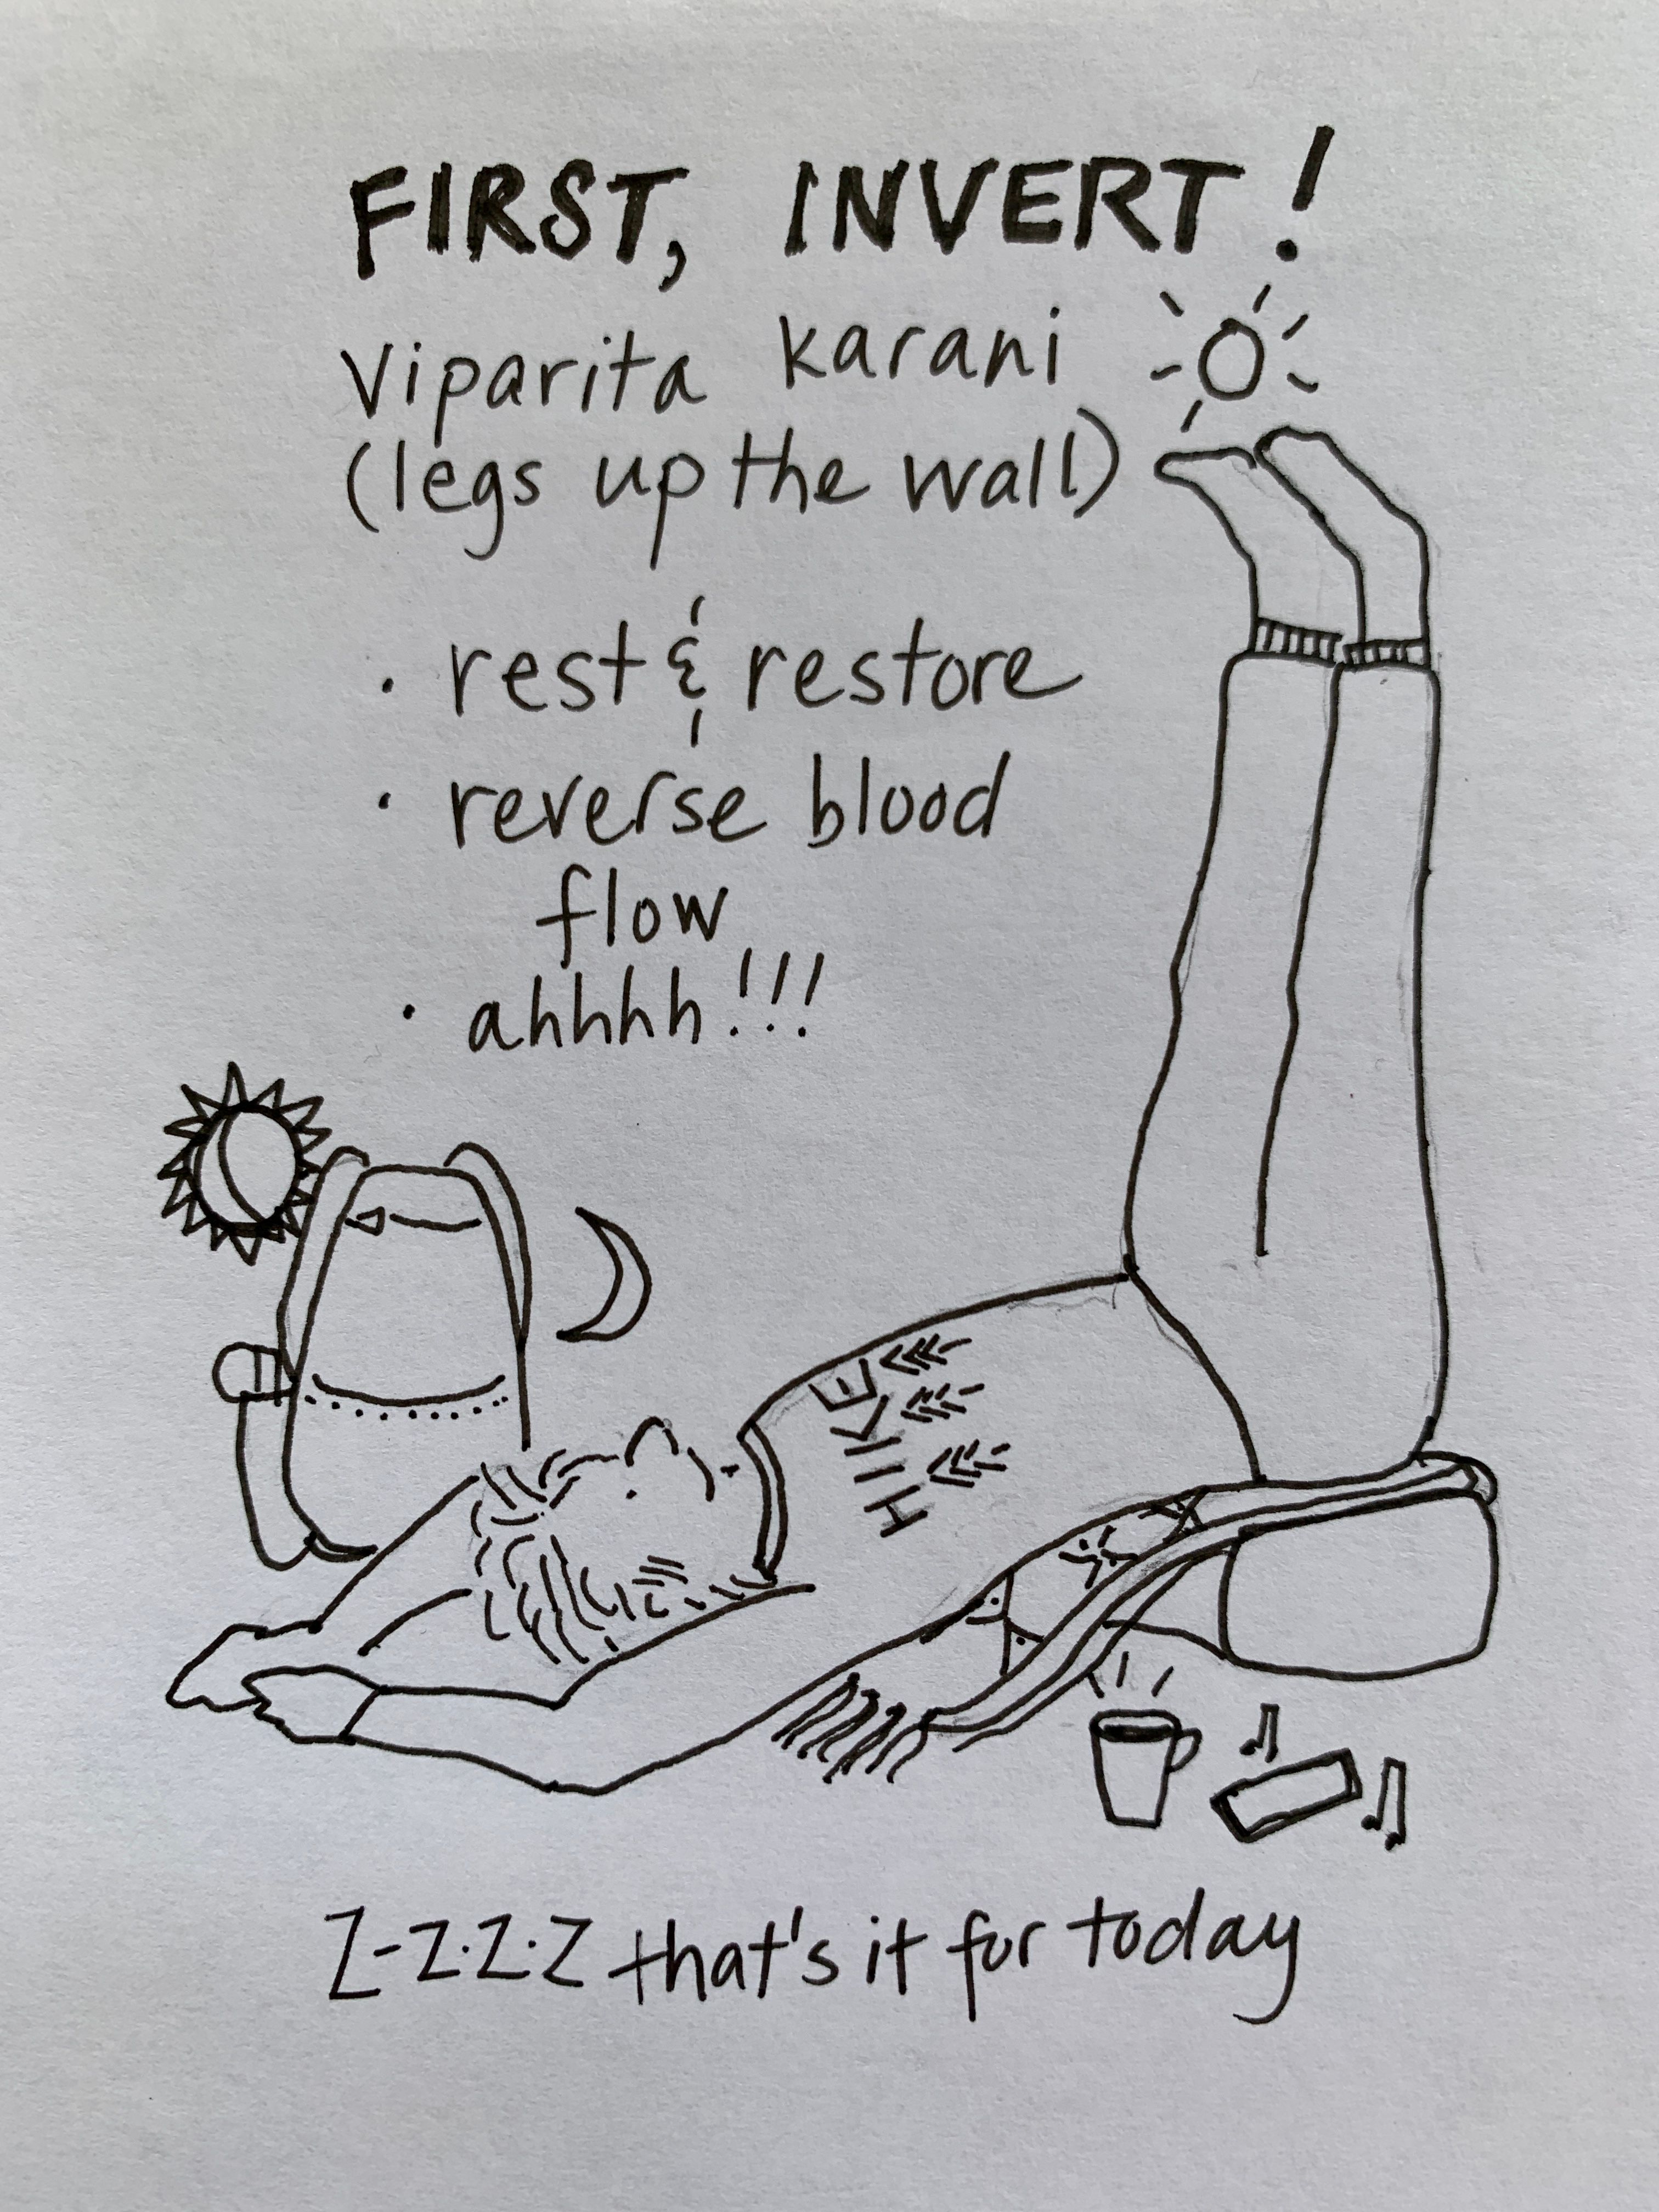 FIRST, INVERT!
Viparita Karani
(legs up the wall)
· rest & restore
· reverse blood
flow
· ahhhh!!!
HIKE
Z-Z.Z.Z that's it for today